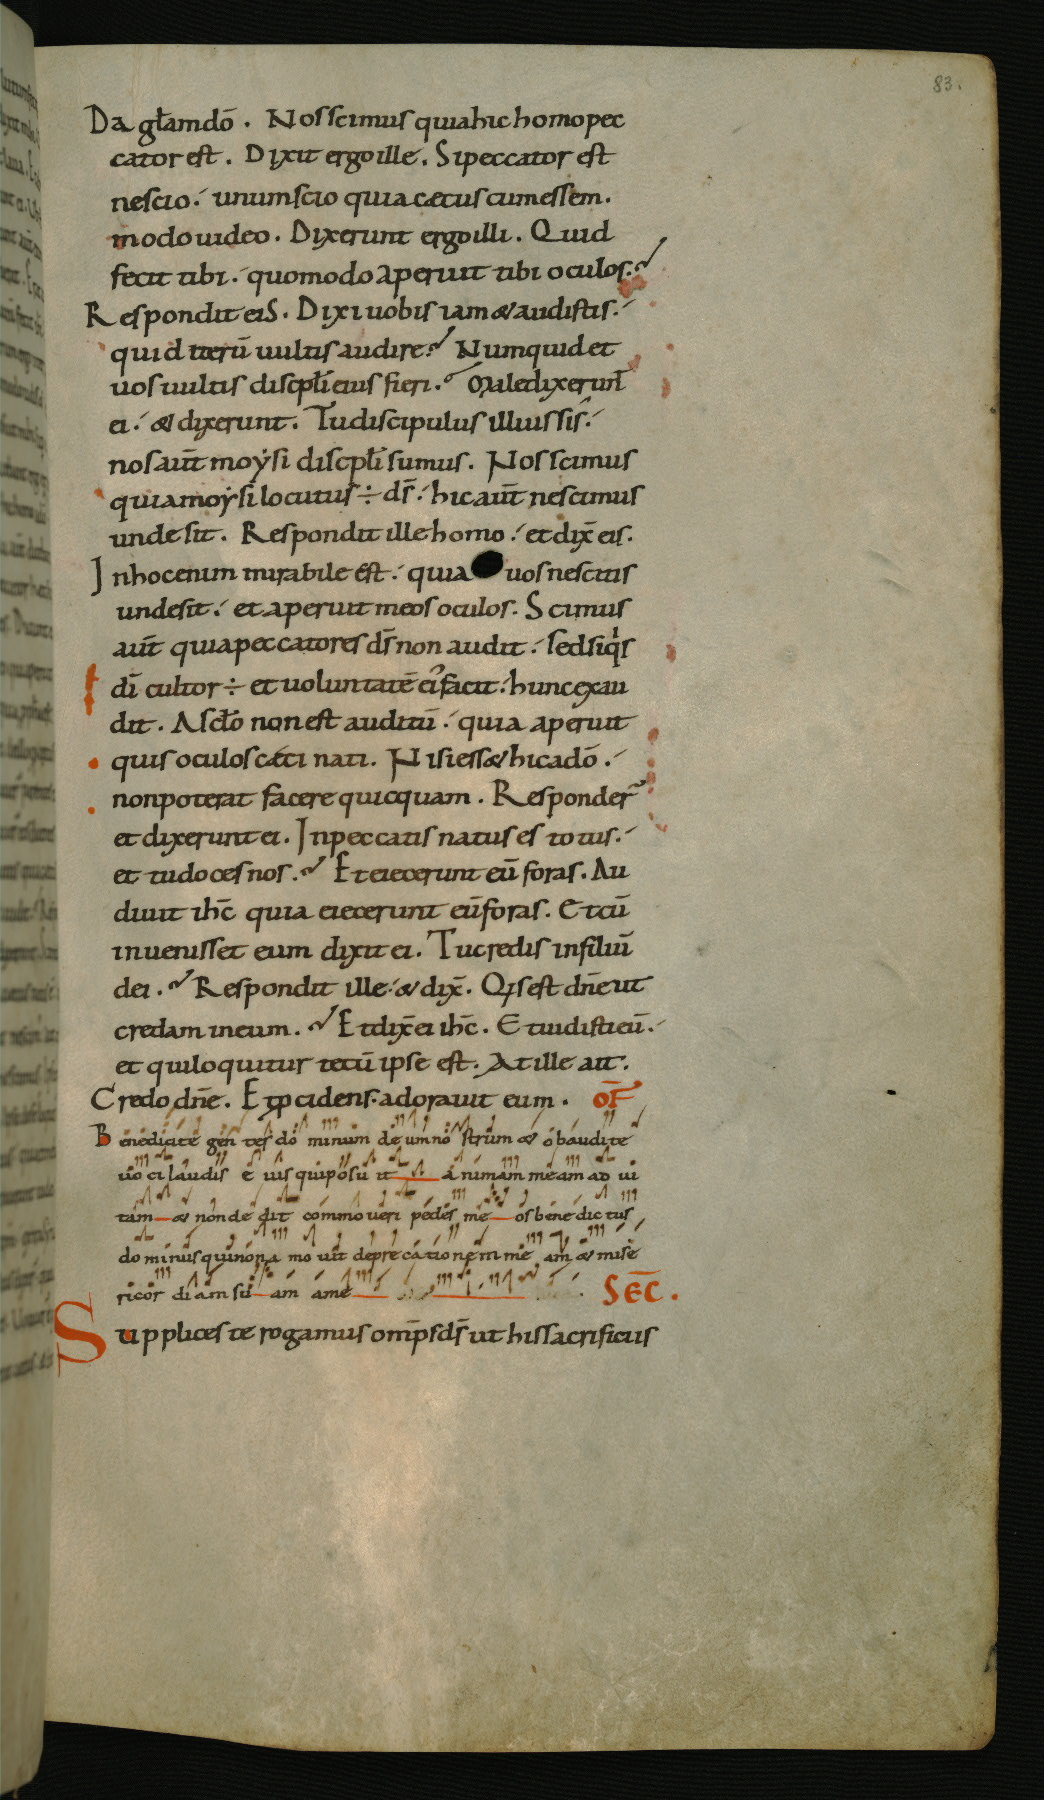 83.
Da gl̄am dō. Nos scimus quia hic homo pec
cator est. Dixit ergo ille. Si peccator est
nescio. unum scio quia cęcus cum essem.
modo uideo. Dixerunt ergo illi. Quid
fecit tibi. quomodo aperuit tibi oculos.
Respondit eis. Dixi uobis iam & audistis.
quid iterū uultis audire. Numquid et
uos uultis discpl̄i eius fieri. Maledixerun̄t
ei. & dixerunt. Tu discipulus illius sis.
nos aūt moẏsi discpl̄i sumus. Nos scimus
quia moẏsi locutus ÷ ds̄. hic aūt nescimus
unde sit. Respondit ille homo. et dix̄ eis.
In hoc enim mirabile est. quia uos nescitis
unde sit. et aperuit meos oculos. Scimus
aūt quia peccatores ds̄ non audit. sed si qs
dī cultor ÷ et uoluntatē ei' facit. hunc exau
dit. A scl̄o non est auditū. quia aperuit
quis oculos cęci nati. Nisi ess& hic a dō.
non poterat facere quicquam. Responder̄
et dixerunt ei. In peccatis natus es totus.
et tu doces nos. Et eiecerunt eū foras. Au
diuit ih̄c quia eiecerunt eū foras. Et cū
inuenisset eum dixit ei. Tu credis in filiū
dei. Respondit ille & dix̄. Qis est dn̄e ut
credam in eum. Et dix̄ ei ih̄c. Et uidisti eū.
et qui loquitur tecū ipse est. At ille ait.
Credo dn̄e. Et pcidens adorauit eum. OF̄
Benedicite gentes do minum deum no strum & obaudite
uo ci laudis e ius qui posu it animam meam ad ui
tam & non de dit commoueri pedes me os benedictus
dominus qui non a mo uit deprecationem me am & mise
ricor di am su am a me SEC̄.
Supplices te rogamus omp̄s ds̄ ut his sacrificiis